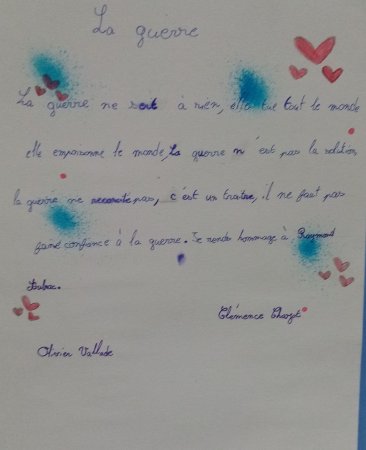 La guerre
La guerre ne sert à rien, elle tue tout le monde
elle emprisonne le monde, la guerre n'est pas la solution,
la guerre ne pas, c'est un traitre, il ne faut pas
faire confiance à la guerre. Je rends hommage à Raymond
Aubrac.
Clémence Chazot
Olivier Vallade